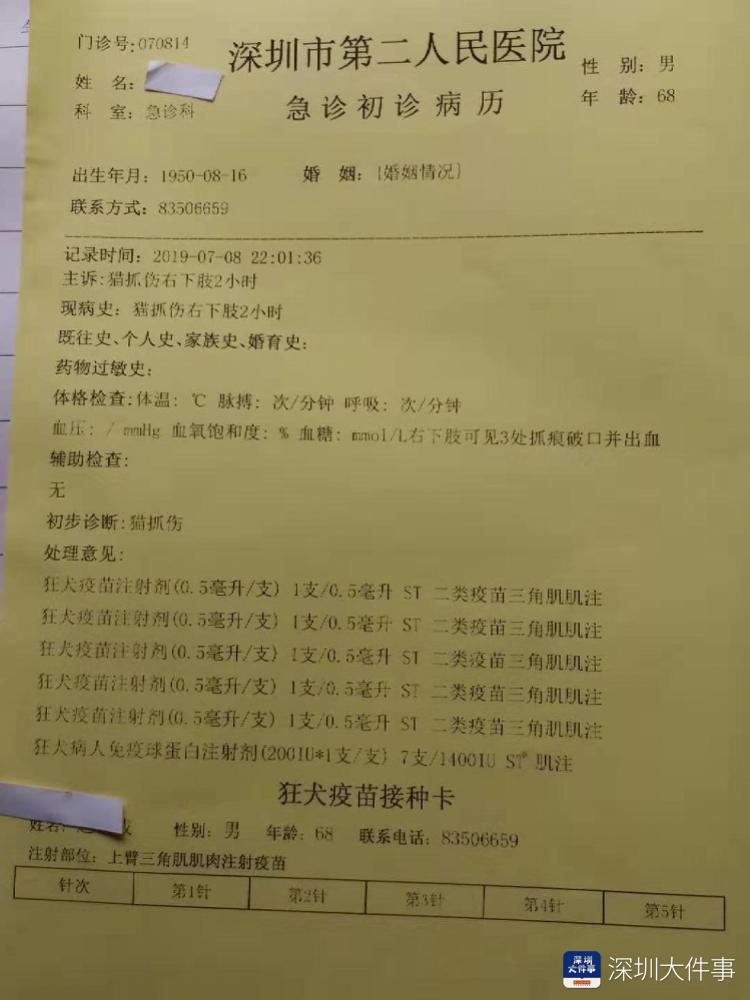 门诊号:070814
深圳市第二人民医院
姓 名:
性 别: 男
科 室: 急诊科
急诊初诊病历
年 龄: 68
出生年月: 1950-08-16 婚 姻: [婚姻情况]
联系方式: 83506659
记录时间: 2019-07-08 22:01:36
主诉:猫抓伤右下肢2小时
现病史: 猫抓伤右下肢2小时
既往史、个人史、家族史、婚育史:
药物过敏史:
体格检查:体温: ℃ 脉搏: 次/分钟 呼吸: 次/分钟
血压: / mmHg 血氧饱和度: % 血糖: mmol/L右下肢可见3处抓痕破口并出血
辅助检查:
无
初步诊断:猫抓伤
处理意见:
狂犬疫苗注射剂(0.5毫升/支) 1支/0.5毫升 ST 二类疫苗三角肌肌注
狂犬疫苗注射剂(0.5毫升/支) 1支/0.5毫升 ST 二类疫苗三角肌肌注
狂犬疫苗注射剂(0.5毫升/支) 1支/0.5毫升 ST 二类疫苗三角肌肌注
狂犬疫苗注射剂(0.5毫升/支) 1支/0.5毫升 ST 二类疫苗三角肌肌注
狂犬疫苗注射剂(0.5毫升/支) 1支/0.5毫升 ST 二类疫苗三角肌肌注
狂犬病人免疫球蛋白注射剂(200IU*1支/支) 7支/1400IU ST 肌注
狂犬疫苗接种卡
姓名: 性别: 男 年龄: 68 联系电话: 83506659
注射部位: 上臂三角肌肌肉注射疫苗
针次 第1针 第2针 第3针 第4针 第5针
深圳大件事 深圳大件事